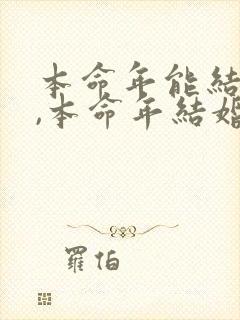 本命年能結
,本命年結婚
羅伯